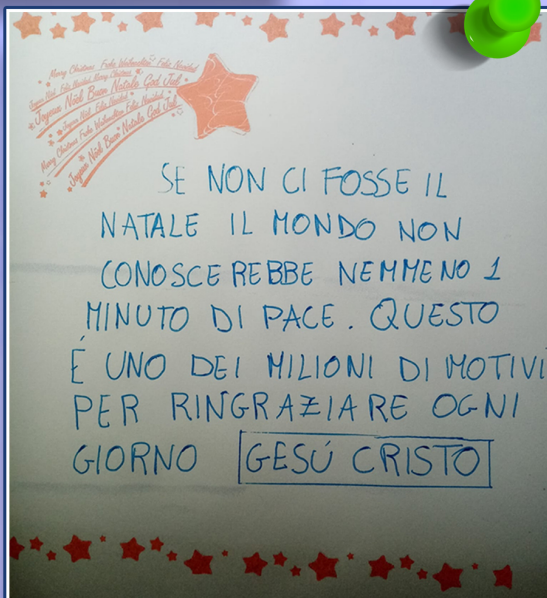 Merry Christmas Frohe Weihnachten Feliz Navidad
Joyeux Noël Feliz Navidad Merry Christmas
Joyeux Noël Buon Natale God Jul
Joyeux Noël Feliz Navidad
Merry Christmas Frohe Weihnachten Feliz Navidad
Joyeux Noël Buon Natale God Jul
SE NON CI FOSSE IL
NATALE IL MONDO NON
CONOSCEREBBE NEMMENO 1
MINUTO DI PACE. QUESTO
É UNO DEI MILIONI DI MOTIVI
PER RINGRAZIARE OGNI
GIORNO GESÚ CRISTO